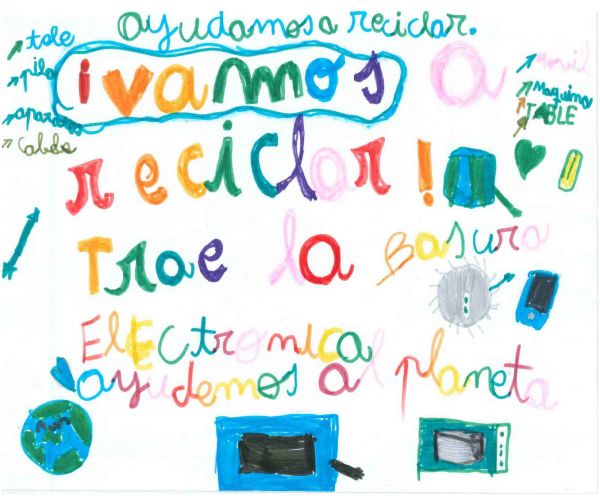 ayudamos a reciclar.
tele
pila
aparatos
Cable
¡vamos a
movil
Maquina
TABLE
reciclar!
Trae la Basura
ElECtronica
ayudemos al planeta